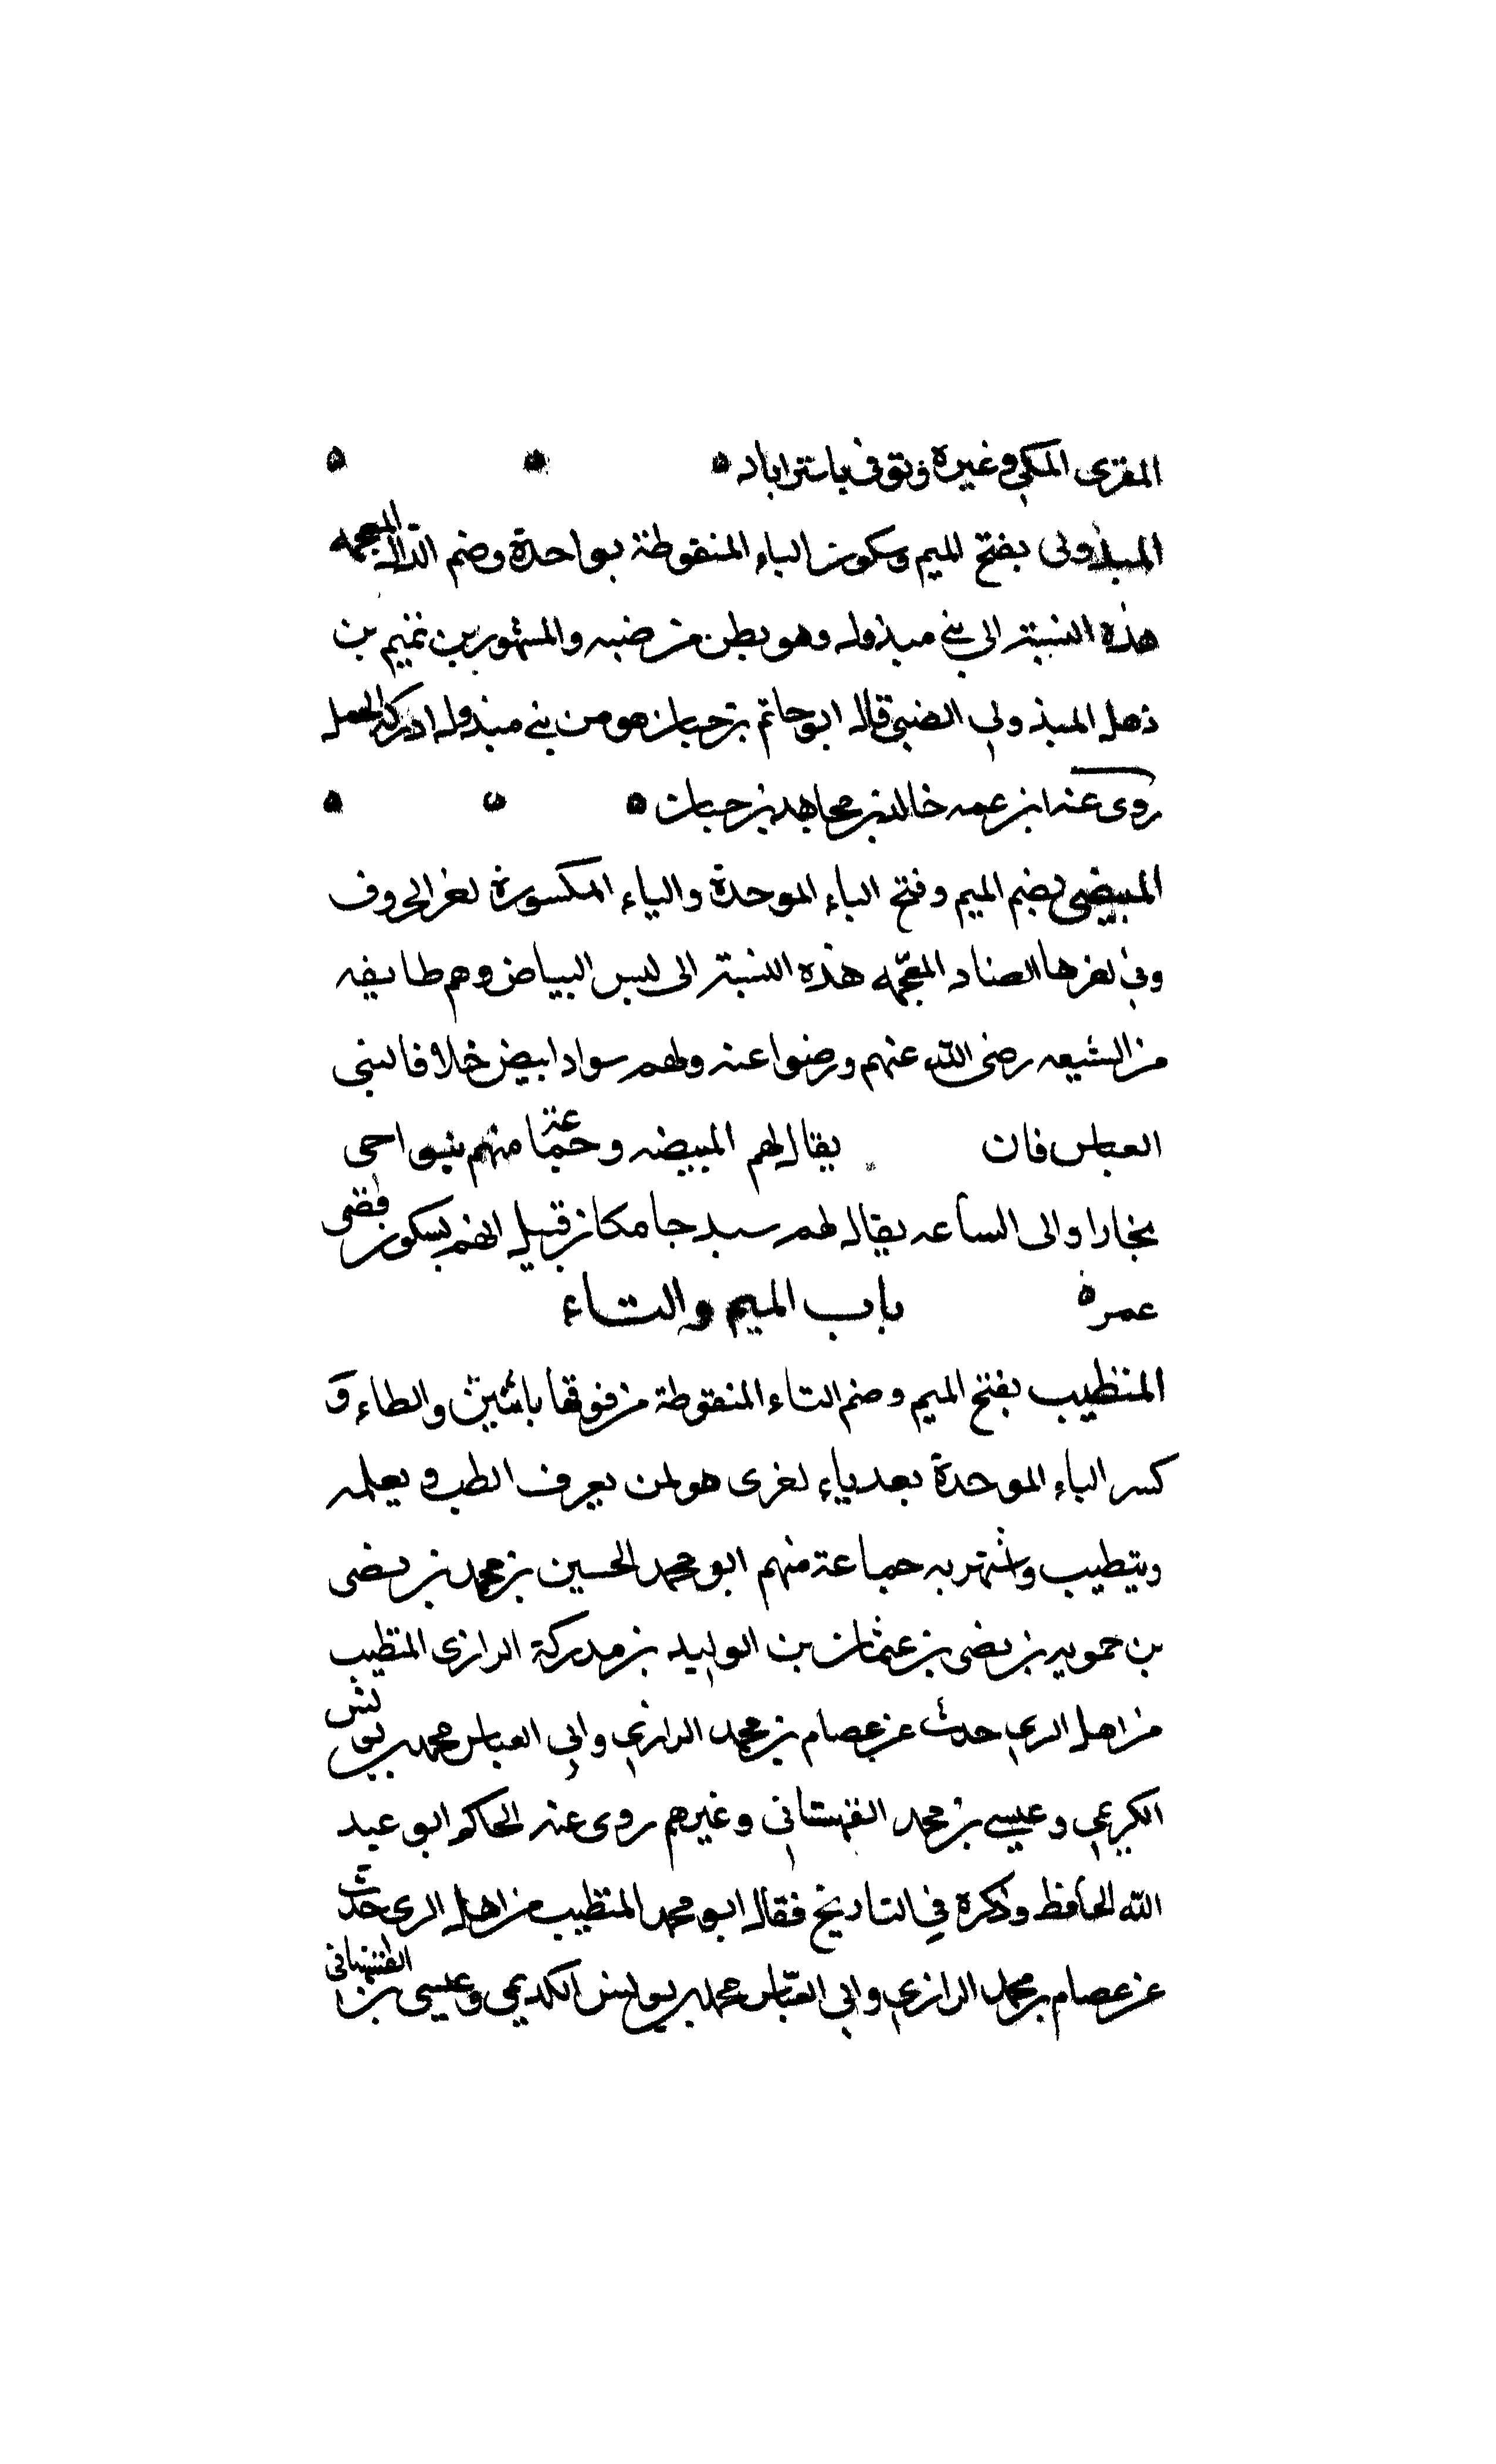 المقرى المكي وغيره وتوفى باستراباد ه ه ه
المبذولى بفتح الميم وسكون الباء المنقوطة بواحدة وضم الذال المعجمه
هذه النسبة الى بني مبذول وهو بطن من ضبه والمشهور بن تميم بن
ذهل المبذولي الضبي قال ابو حاتم بن حبان هو من بني مبذول ادرك الجمل
روى عنه ابن عمه خالد بن مجاهد بن حبان ه ه ه
المبيضى بضم الميم وفتح الباء الموحدة والياء المكسورة اخر الحروف
وفي اخرها الضاد المعجمه هذه النسبة الى لبس البياض وهم طايفه
من الشيعه رضى الله عنهم ورضوا عنه ولهم سواد ابيض خلافا لبنى
العباس فان يقال لهم المبيضه وجماعة منهم بنواحى
بخارا والى الساعه يقال لهم سبيد جامكان قيل انهم يسكنون قصى
عمر ه باب الميم والتاء
المتطبب بفتح الميم وضم التاء المنقوطة من فوقها باثنتين والطاء و
كسر الباء الموحدة بعد ياء اخرى هو لمن يعرف الطب ويعلمه
ويتطبب واشتهر به جماعة منهم ابو محمد الحسين بن محمد بن رضى
بن حمويه بن رضى بن عثمان بن الوليد بن مدركة الرازى المتطبب
من اهل الري حدث عن عصام بن محمد الرازي وابي العباس محمد بن يونس
الكديمي وعيسى بن محمد القهستاني وغيرهم روى عنه الحاكم ابو عبد
الله الحافظ وذكره في التاريخ فقال ابو محمد المتطبب من اهل الرى حدث
عن عصام بن محمد الرازي وابي العباس محمد بن يونس الكديمي وعيسى بن